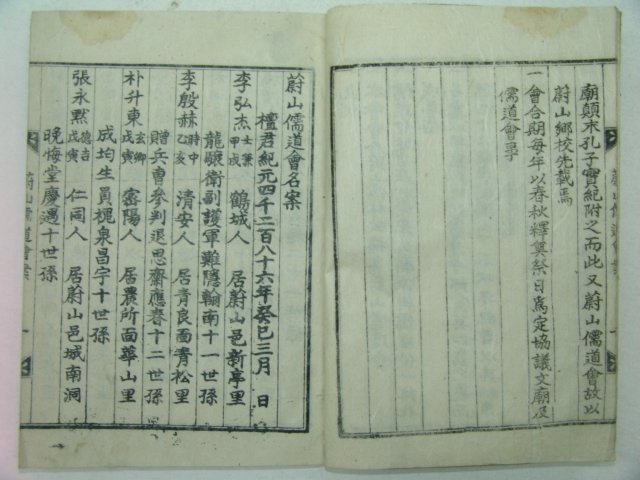 廟顛末孔子實紀附之而此又蔚山儒道會故以
蔚山鄉校先載焉
一會合期每年以春秋釋奠祭日爲定協議文廟及
儒道會事
蔚山儒道會名案
檀君紀元四千二百八十六年癸巳三月 日
李弘杰 士兼 甲戌 鶴城人 居蔚山邑新亭里
龍驤衛副護軍難隱翰南十一世孫
李殷赫 時中 乙亥 清安人 居青良面青松里
贈兵曹參判退思齋應春十二世孫
朴升東 玄卿 戊寅 密陽人 居農所面華山里
成均生員槐泉昌宇十世孫
張永黙 德吉 戊寅 仁同人 居蔚山邑城南洞
晚悔堂慶遇十世孫
蔚山儒道會案